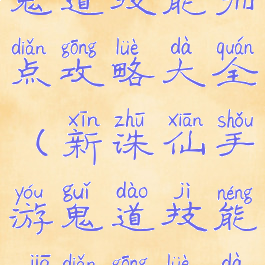 鬼道技能加
diǎn gōng lüè dà quán
点攻略大全
xīn zhū xiān shǒu
（新诛仙手
yóu guǐ dào jì néng
游鬼道技能
jiā diǎn gōng lüè dà